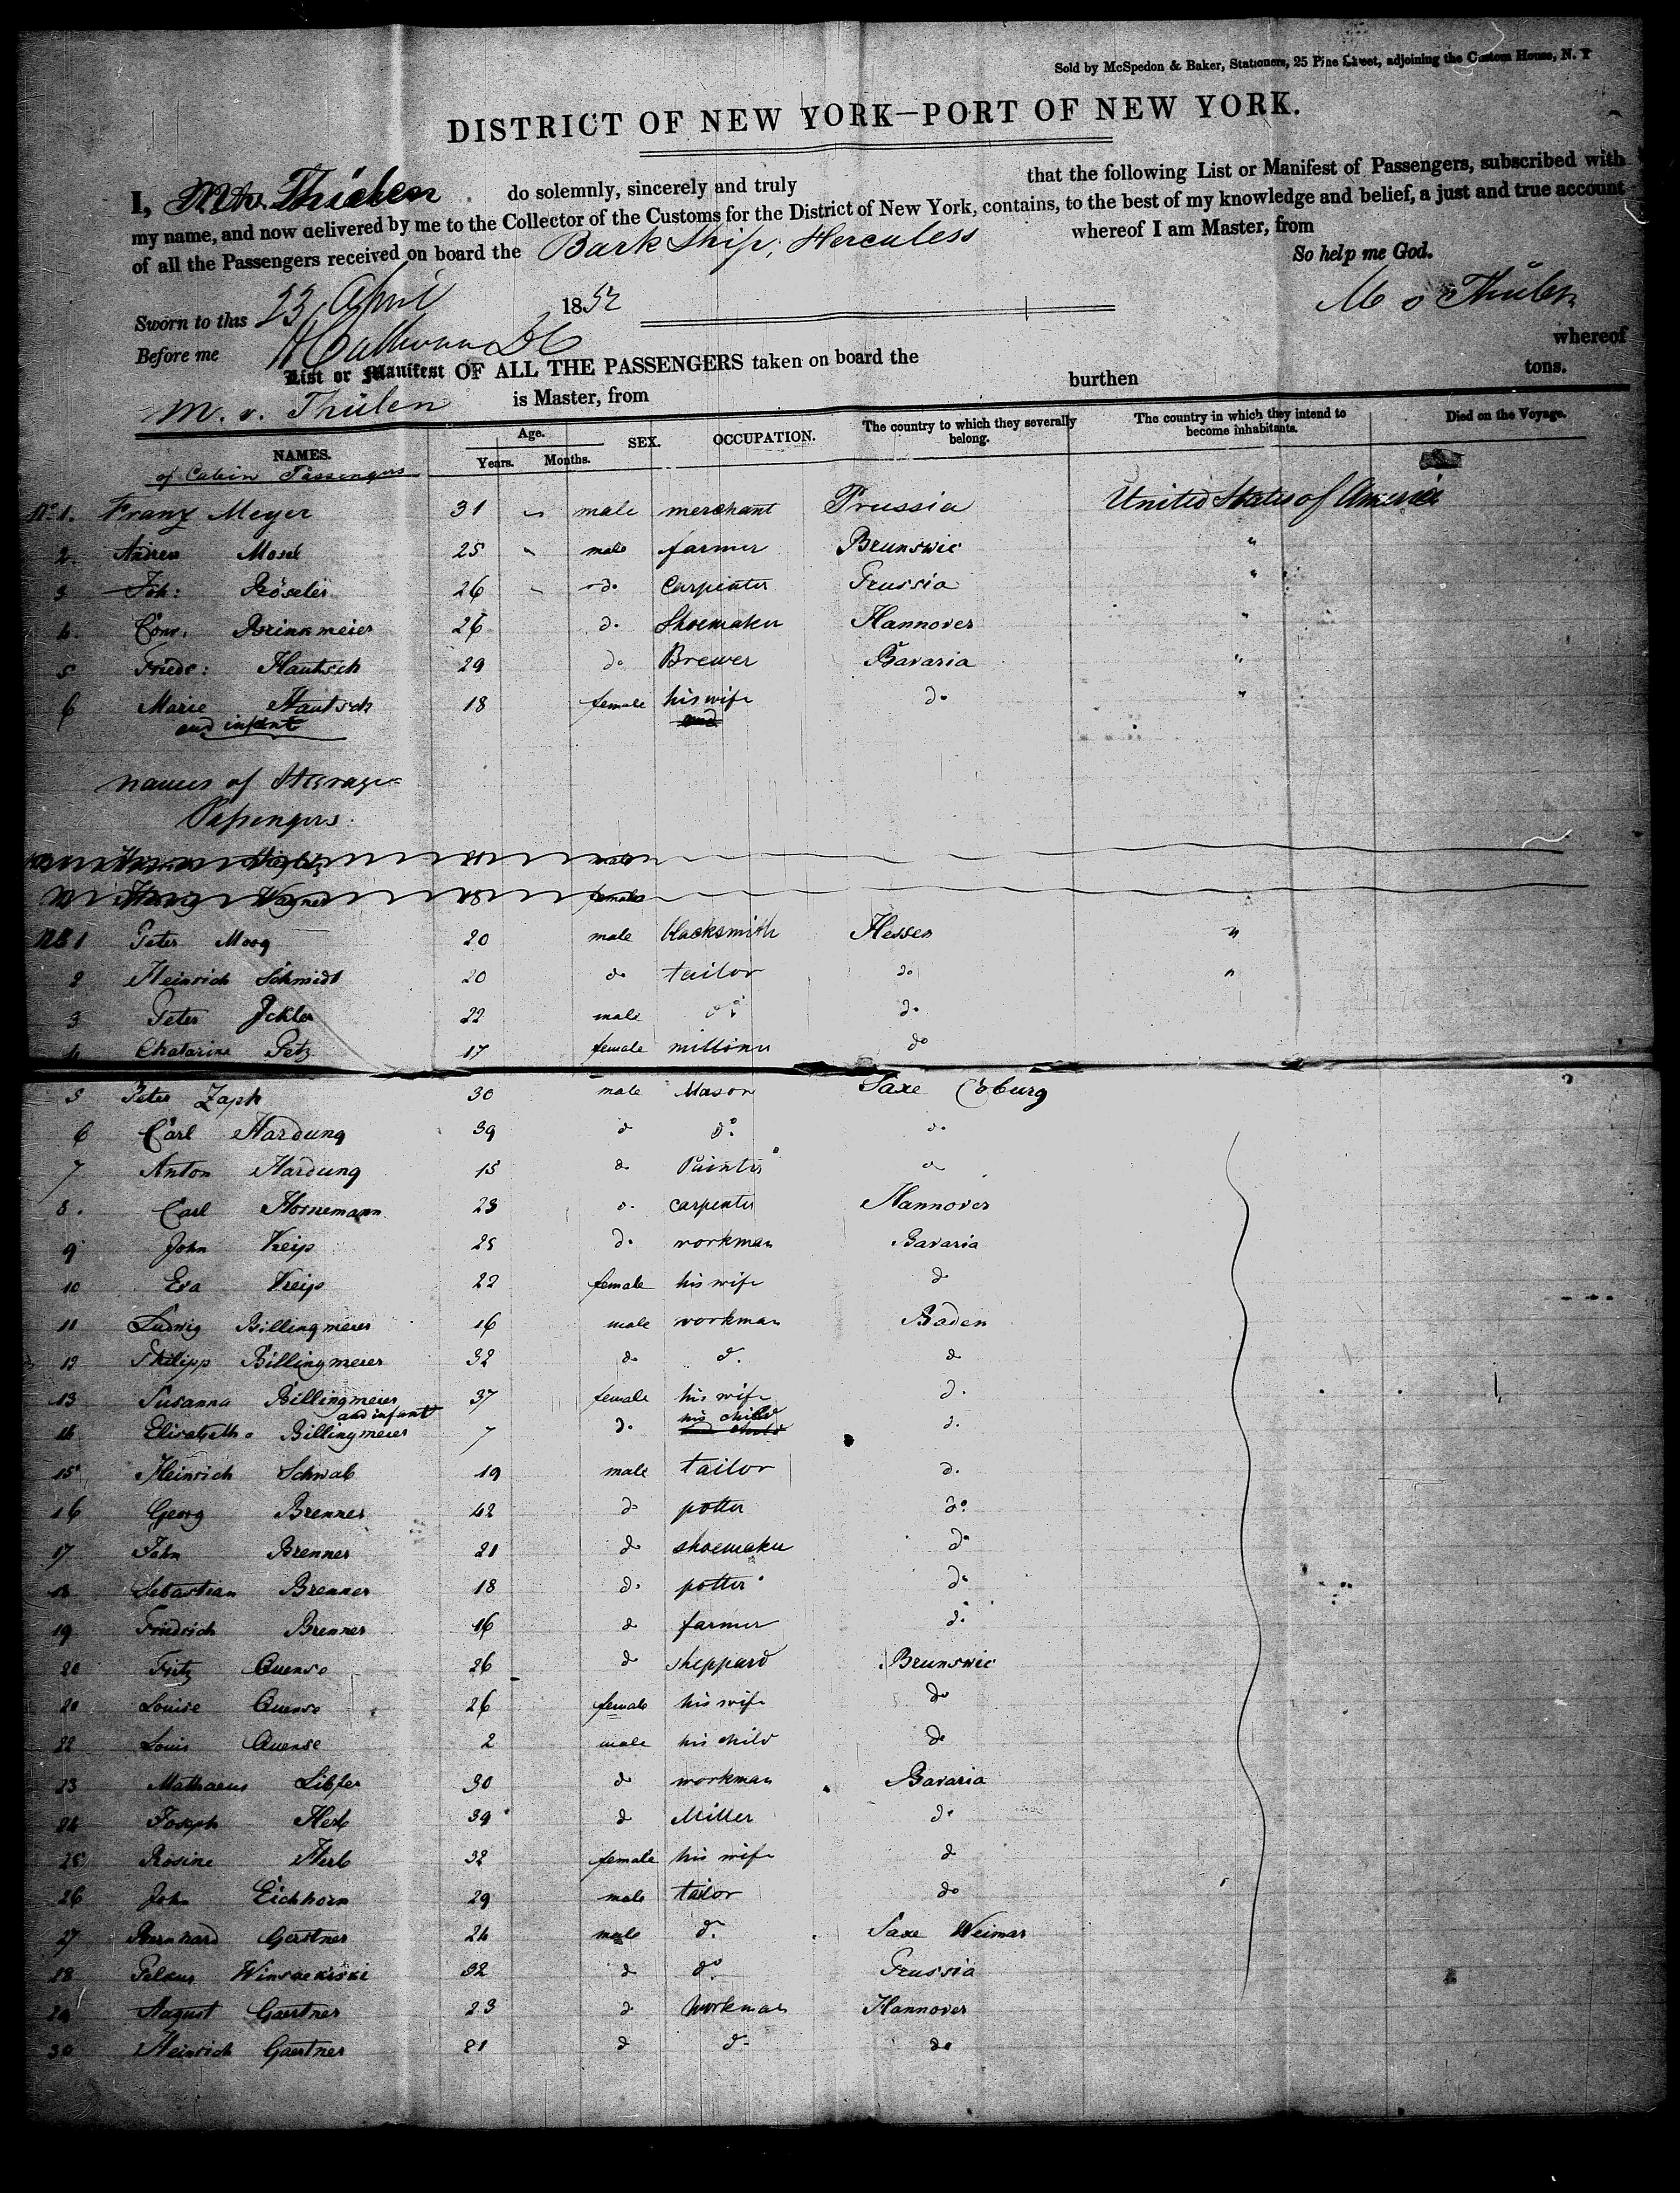 Sold by McSpedon & Baker, Stationers, 25 Pine Street, adjoining the Custom House, N. Y
DISTRICT OF NEW YORK—PORT OF NEW YORK.
I, M. v. Thülen do solemnly, sincerely and truly that the following List or Manifest of Passengers, subscribed with
my name, and now delivered by me to the Collector of the Customs for the District of New York, contains, to the best of my knowledge and belief, a just and true account
of all the Passengers received on board the Bark Ship, Herculess whereof I am Master, from
So help me God.
Sworn to this 23 April 1852 M v Thülen
Before me
List or Manifest OF ALL THE PASSENGERS taken on board the whereof
M. v. Thülen is Master, from burthen tons.
NAMES. Age. Years. Months. SEX. OCCUPATION. The country to which they severally belong. The country in which they intend to become inhabitants. Died on the Voyage.
of Cabin Passengers
No. 1. Franz Meyer 31 " male merchant Prussia United States of America
2. Andrew Mosel 25 " male farmer Brunswic "
3 Joh: Röseler 26 " do. carpenter Prussia "
4. Conr. Brinkmeier 26 d. Shoemaker Hannover "
5 Friedr: Hautsch 29 do Brewer Bavaria "
6 Marie Hautsch 18 female his wife do "
and infant
names of Steerage
Passengers.
Wagner 18 female
No 1 Peter Moog 20 male blacksmith Hessen "
2 Heinrich Schmidt 20 do tailor do "
3 Peter Ickler 22 male do d.
4 Chatarine Petz 17 female milliner do
5 Peter Zaph 30 male Mason Saxe Coburg
6 Carl Hardung 39 d do d.
7 Anton Hardung 15 d. Painter d
8. Carl Hornemann 23 d. carpenter Hannover
9 John Kreip 25 d. workman Bavaria
10 Eva Kreip 22 female his wife d
11 Ludwig Billingmeier 16 male workman Baden
12 Philipp Billingmeier 32 d. d. d
13 Susanna Billingmeier 37 female his wife d.
and infant
14 Elisabetha Billingmeier 7 d. his child d.
15 Heinrich Schwab 19 male tailor d.
16 Georg Brenner 42 d. potter do
17 John Brenner 21 d. shoemaker do
18 Sebastian Brenner 18 d. potter do
19 Friedrich Brenner 16 d farmer d.
20 Fritz Quense 26 d sheppard Brunswic
20 Louise Quense 26 female his wife do
22 Louis Quense 2 male his child do
23 Mathaeus Libfer 30 d workman Bavaria
24 Joseph Herb 39 d Miller do
25 Rosine Herb 32 female his wife d
26 John Eichhorn 29 male tailor do
27 Bernhard Gerstner 24 male d. Saxe Weimar
28 32 d do Prussia
29 August Gaertner 23 d workman Hannover
30 Heinrich Gaertner 21 d d. do